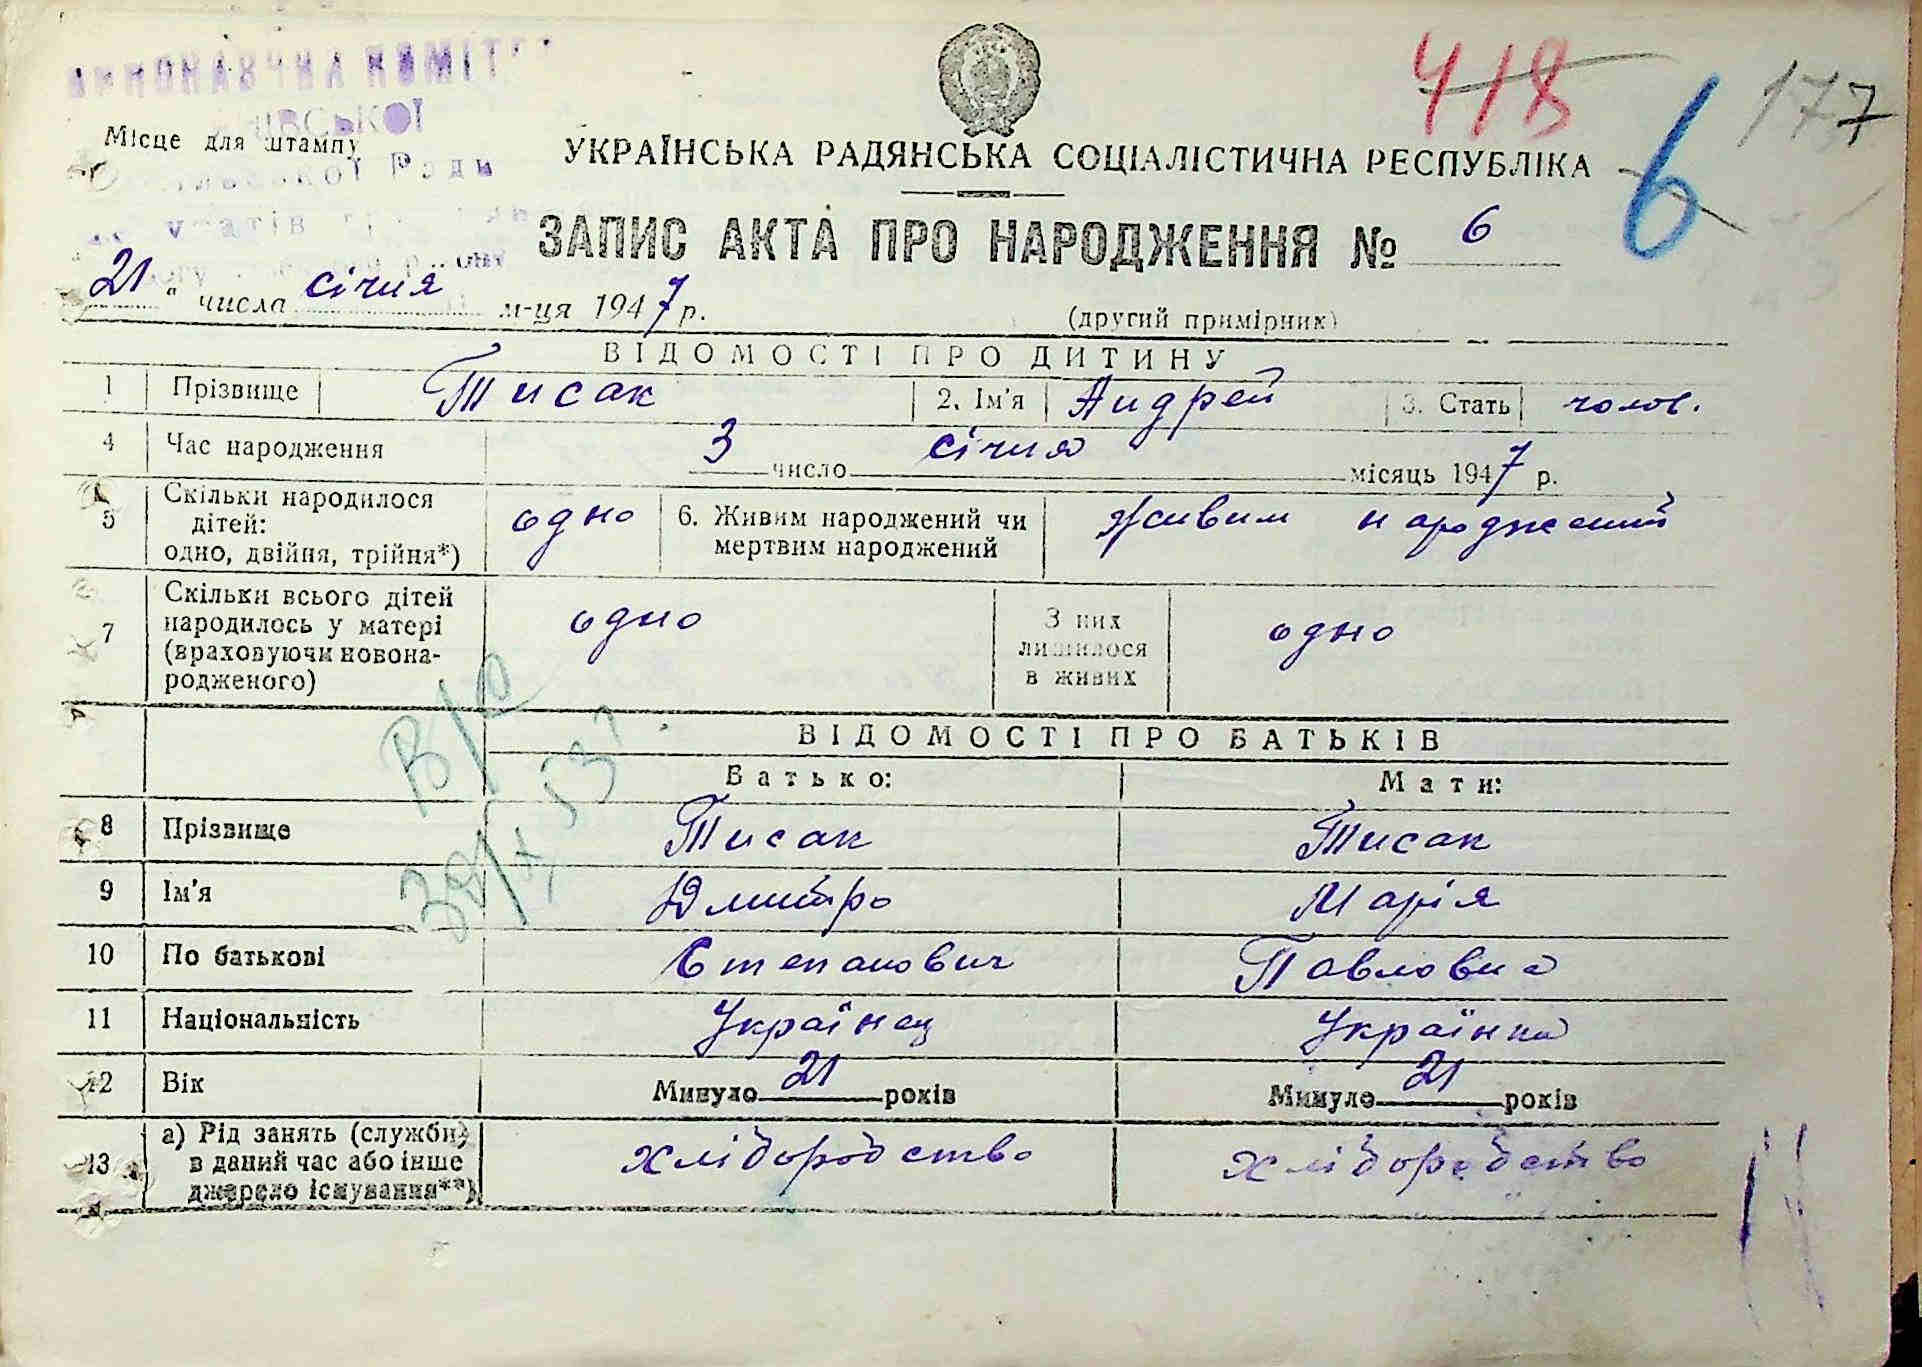 418
6
177
Місце для штампу
УКРАЇНСЬКА РАДЯНСЬКА СОЦІАЛІСТИЧНА РЕСПУБЛІКА
ЗАПИС АКТА ПРО НАРОДЖЕННЯ № 6
21 " числа січня м-ця 1947 р.
(другий примірник)
ВІДОМОСТІ ПРО ДИТИНУ
1 Прізвище Тисак 2. Ім'я Андрей 3. Стать чолов.
4 Час народження 3 число січня місяць 1947 р.
5 Скільки народилося дітей: одно, двійня, трійня*) одно 6. Живим народжений чи мертвим народжений Живим народжений
7 Скільки всього дітей народилось у матері (враховуючи новонародженого) одно З них лишилося в живих одно
ВІДОМОСТІ ПРО БАТЬКІВ
Батько: Мати:
8 Прізвище Тисак Тисак
9 Ім'я Дмитро Марія
10 По батькові Степанович Павловна
11 Національність Українец Українка
12 Вік Минуло 21 років Минуло 21 років
13 а) Рід занять (служби) в даний час або інше джерело існування**) хліборобство хліборобство